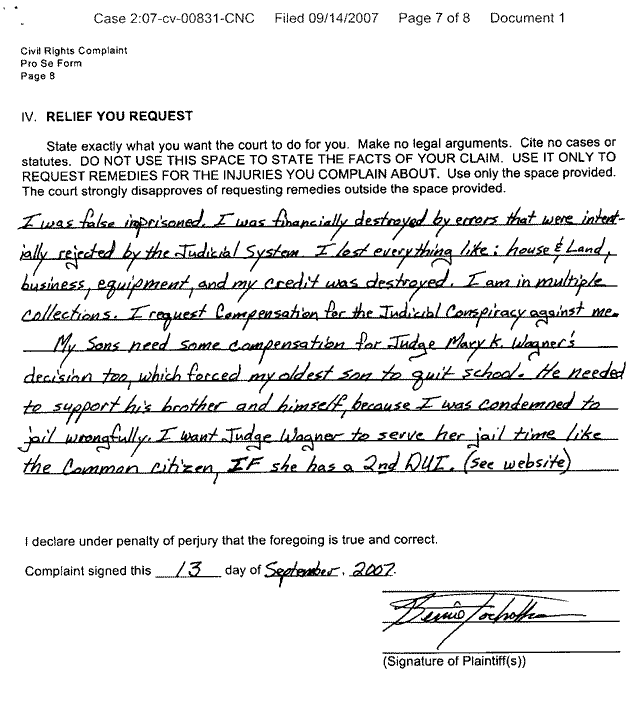 Case 2:07-cv-00831-CNC Filed 09/14/2007 Page 7 of 8 Document 1
Civil Rights Complaint
Pro Se Form
Page 8
IV. RELIEF YOU REQUEST
State exactly what you want the court to do for you. Make no legal arguments. Cite no cases or
statutes. DO NOT USE THIS SPACE TO STATE THE FACTS OF YOUR CLAIM. USE IT ONLY TO
REQUEST REMEDIES FOR THE INJURIES YOU COMPLAIN ABOUT. Use only the space provided.
The court strongly disapproves of requesting remedies outside the space provided.
I was false imprisoned. I was financially destroyed by errors that were intent-
ially rejected by the Judicial System. I lost everything like: house & Land,
business, equipment, and my credit was destroyed. I am in multiple
collections. I request Compensation for the Judicial Conspiracy against me.
My Sons need some compensation for Judge Mary K. Wagner's
decision too, which forced my oldest son to quit school. He needed
to support his brother and himself, because I was condemned to
jail wrongfully. I want Judge Wagner to serve her jail time like
the Common citizen, IF she has a 2nd DUI. (see website)
I declare under penalty of perjury that the foregoing is true and correct.
Complaint signed this 13 day of September, 2007.
(Signature of Plaintiff(s))